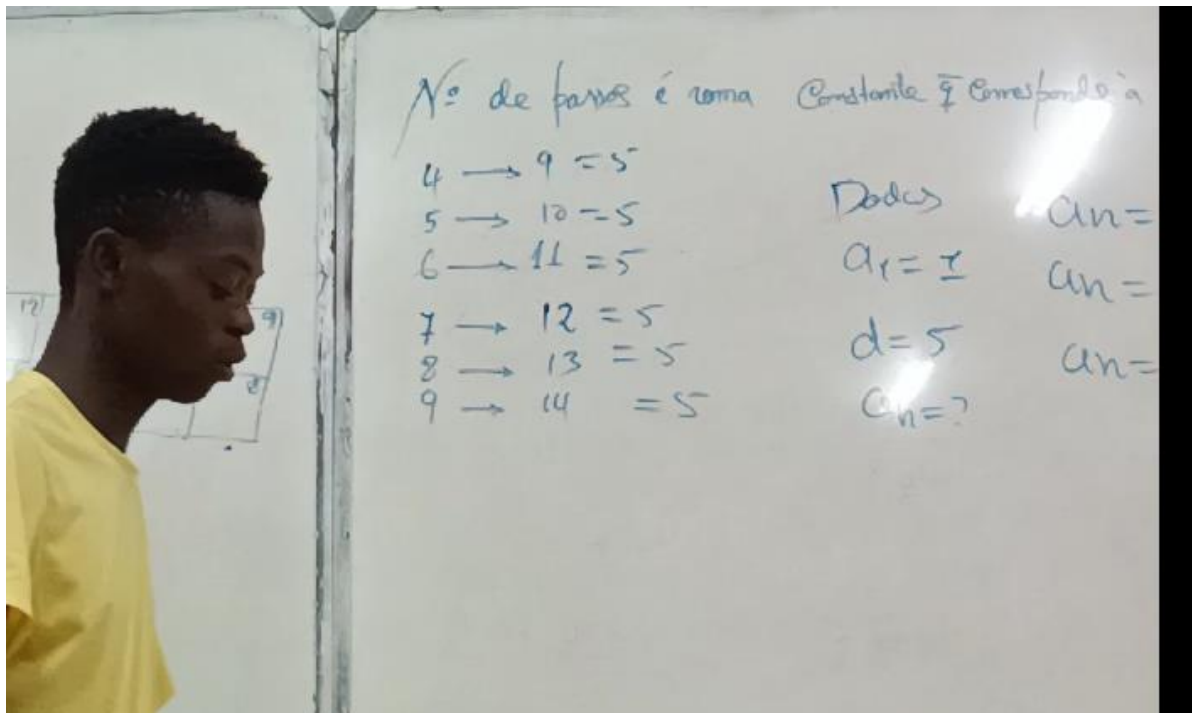 Nº de passos é uma Constante q̄ Corresponde à
4 → 9 = 5
5 → 10 = 5
6 → 11 = 5
7 → 12 = 5
8 → 13 = 5
9 → 14 = 5
Dados
a₁ = 1
d = 5
an = ?
an =
an =
an =
12
9